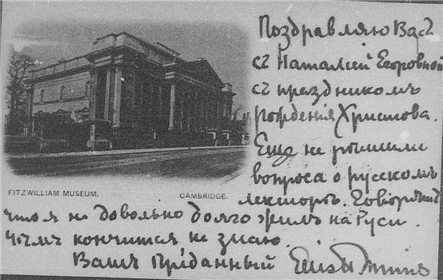 Поздравляю Васъ
съ Наталіей Егоровной
съ праздникомъ
рожденія Христова.
Еще не рѣшили
вопроса о русскомъ
лекторѣ. Говорятъ
что я не довольно долго жилъ на Руси.
Чѣмъ кончится не знаю.
Вашъ преданный Ellis H Minns
FITZWILLIAM MUSEUM. CAMBRIDGE.